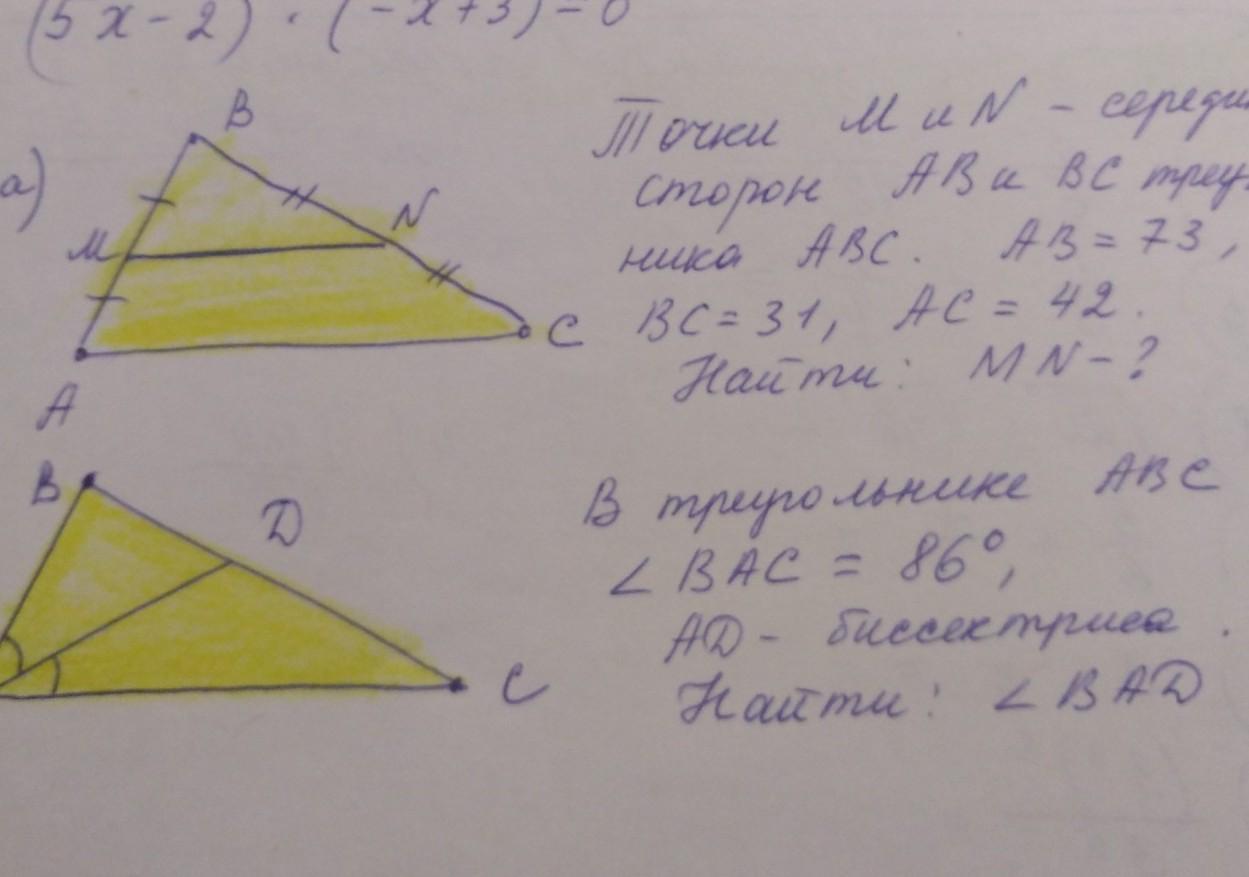 (5x-2) · (-x+3)=0
а)
B
M
N
C
A
Точки M и N - середин
сторон AB и BC треу
ника ABC. AB = 73,
BC = 31, AC = 42.
Найти: MN - ?
B
D
C
В треугольнике ABC
∠BAC = 86°,
AD - биссектриса.
Найти: ∠BAD